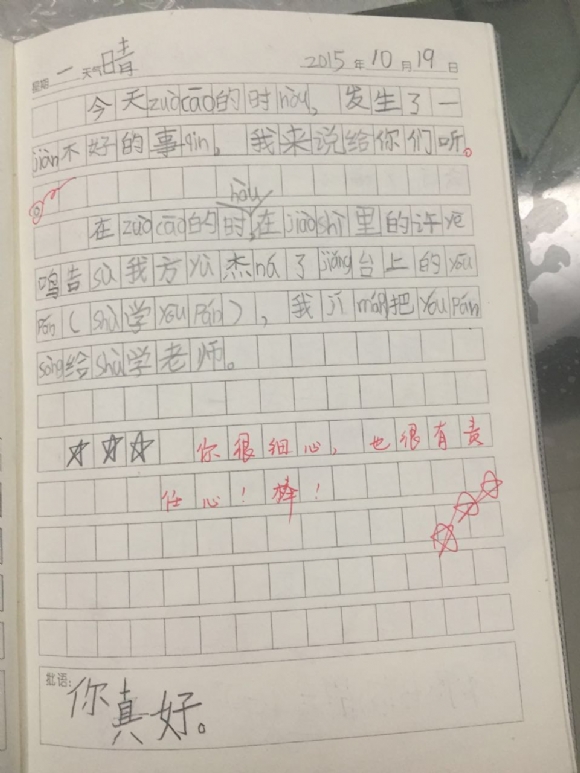 星期 一 天气 晴 2015 年 10 月 19 日
今天zuò cāo的时hòu，发生了一
jiàn不好的事qin，我来说给你们听。
hòu
在zuò cāo的时在jiào shì里的许yè
鸣告sù我方yǔ杰ná了jiǎng台上的yōu
pán（shù学yōu pán），我jí máng把yōu pán
sòng给shù学老师。
你很细心，也很有责
任心！棒！
批语：
你真好。